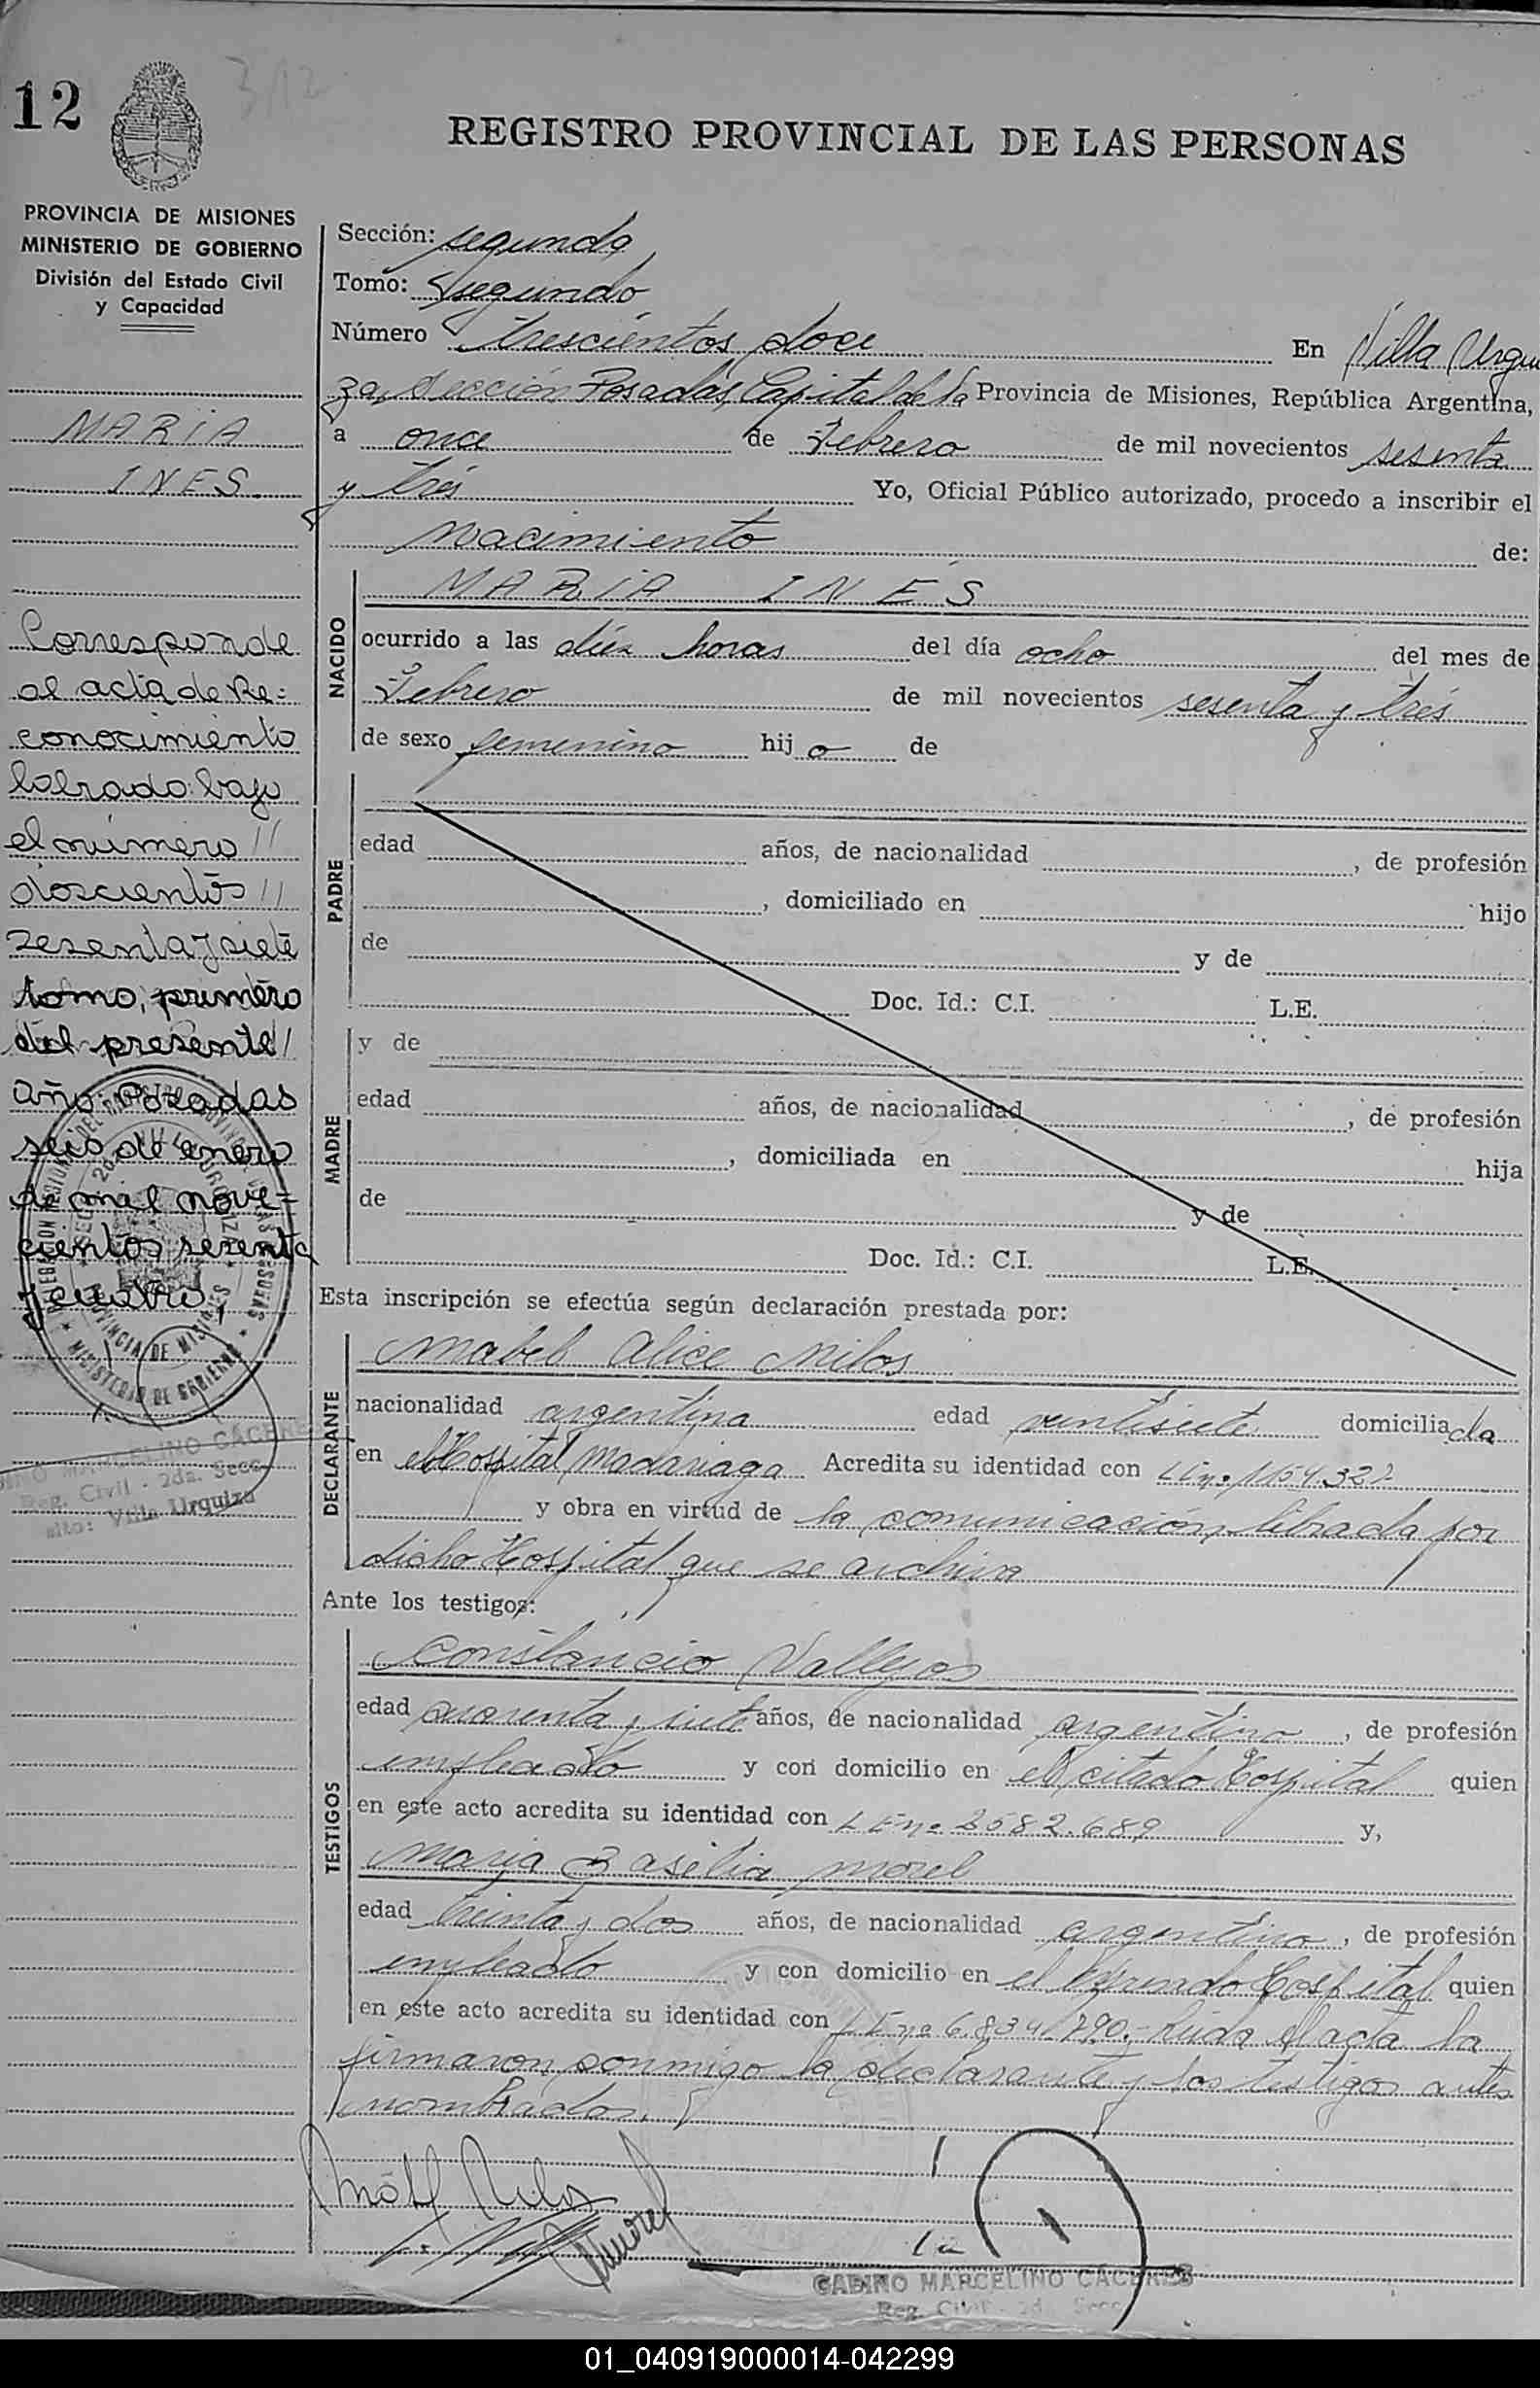 12
312
REGISTRO PROVINCIAL DE LAS PERSONAS
PROVINCIA DE MISIONES
MINISTERIO DE GOBIERNO
División del Estado Civil
y Capacidad
MARIA
INES
Corresponde
al acta de Re=
conocimiento
labrado bajo
el número //
doscientos //
sesenta y siete
tomo, primero
del presente /
año. Posadas
seis de enero
de mil nove=
cientos sesenta
y cuatro,
MARCELINO CACERES
Reg. Civil - 2da. Secc.
Villa Urquiza
Sección: segunda
Tomo: segundo
Número trescientos doce En Villa Urqui
za, Sección Posadas, Capital de la Provincia de Misiones, República Argentina,
a once de Febrero de mil novecientos sesenta
y tres Yo, Oficial Público autorizado, procedo a inscribir el
nacimiento de:
NACIDO
MARIA INES
ocurrido a las diez horas del día ocho del mes de
Febrero de mil novecientos sesenta y tres
de sexo femenino hij a de
PADRE
edad años, de nacionalidad , de profesión
, domiciliado en hijo
de y de
Doc. Id.: C.I. L.E.
MADRE
y de
edad años, de nacionalidad , de profesión
, domiciliada en hija
de y de
Doc. Id.: C.I. L.E.
Esta inscripción se efectúa según declaración prestada por:
DECLARANTE
Mabel Alice Milos
nacionalidad argentina edad veintisiete domiciliada
en el Hospital Madariaga Acredita su identidad con nº 1154.322
y obra en virtud de la comunicación librada por
dicho Hospital que se archiva
Ante los testigos:
TESTIGOS
Constancio Vallejos
edad cuarenta y siete años, de nacionalidad argentino, de profesión
empleado y con domicilio en el citado Hospital quien
en este acto acredita su identidad con LE nº 2582.689 y,
Maria Basilia Morel
edad treinta y dos años, de nacionalidad argentina, de profesión
empleada y con domicilio en el Hospital quien
en este acto acredita su identidad con LE nº 6.834.290.- Leída el acta la
firmaron conmigo la declarante y los testigos antes
nombrados.
GABINO MARCELINO CACERES
Reg. Civil - 2da. Secc.
01_040919000014-042299